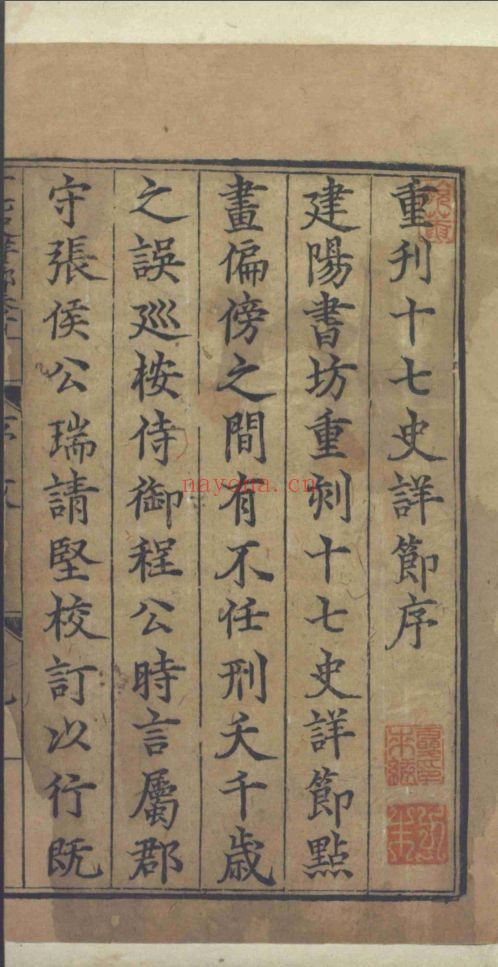 重刊十七史詳節序
建陽書坊重刻十七史詳節點
畫偏傍之間有不任刑夭千歳
之誤廵桉侍御程公時言屬郡
守張侯公瑞請堅校訂以行既
nayona.cn